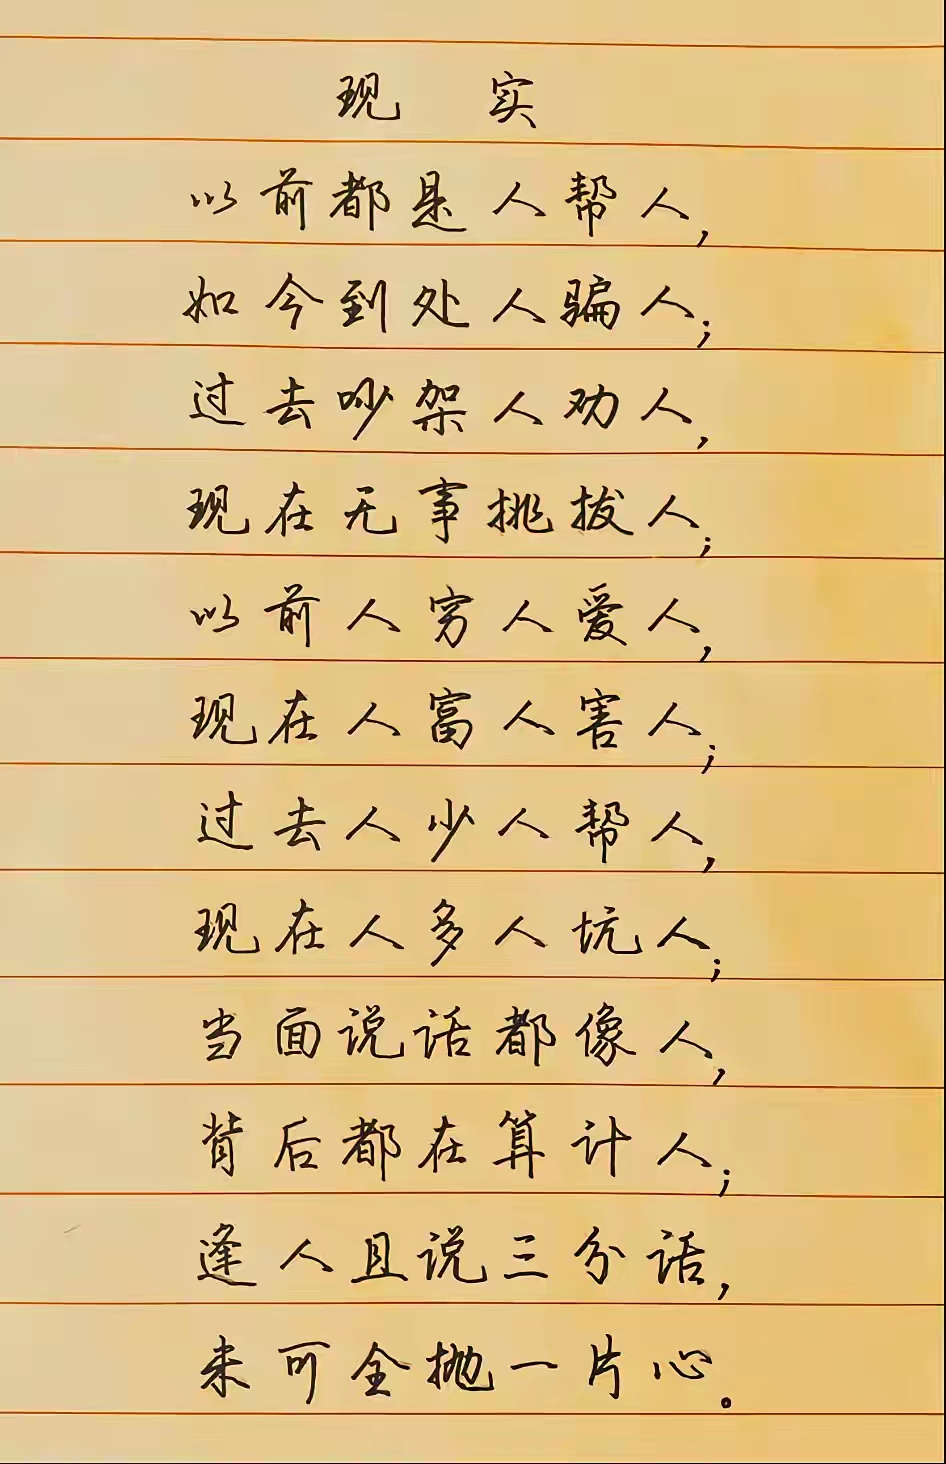 现 实
以前都是人帮人,
如今到处人骗人;
过去吵架人劝人,
现在无事挑拔人;
以前人穷人爱人,
现在人富人害人;
过去人少人帮人,
现在人多人坑人;
当面说话都像人,
背后都在算计人;
逢人且说三分话,
未可全抛一片心。